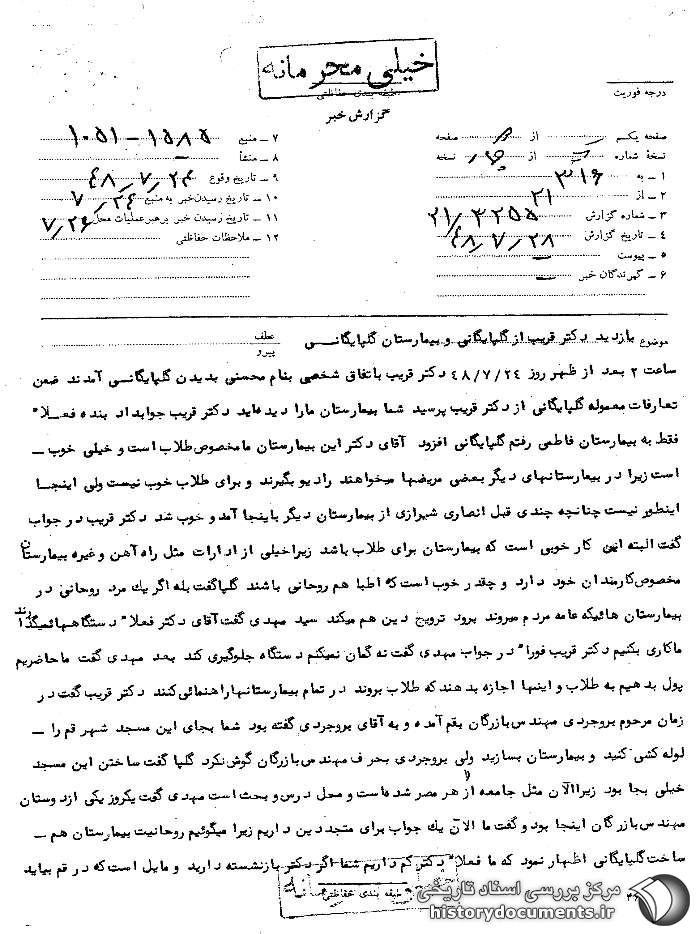 خیلی محرمانه
طبقه بندی حفاظتی
گزارش خبر
درجه فوریت
صفحه یکم از صفحه
نسخه شماره از نسخه
۱ ــ به ۳۱۶
۲ ــ از ۲۱
۳ ــ شماره گزارش ۲۱/۳۲۵۵
۴ ــ تاریخ گزارش ۴۸/۷/۲۸
۵ ــ پیوست ــ
۶ ــ گیرندگان خبر
۷ ــ منبع ۱۵۸۵ ــ ۱۰۵۱
۸ ــ منشأ ــ
۹ ــ تاریخ وقوع ۴۸/۷/۲۴
۱۰ ــ تاریخ رسیدن خبر به منبع ۷/۲۴
۱۱ ــ تاریخ رسیدن خبر برهبر عملیات محل ۷/۲۶
۱۲ ــ ملاحظات حفاظتی
موضوع بازدید دکتر قریب از گلپایگانی و بیمارستان گلپایگانــی
عطف
پیرو
ساعت ۲ بعد از ظهر روز ۴۸/۷/۲۴ دکتر قریب باتفاق شخصی بنام محسنی بدیدن گلپایگانــی آمدند ضمن
تعارفات معموله گلپایگانی از دکتر قریب پرسید شما بیمارستان مارا دیده‌اید دکتر قریب جوابداد بنده فعــلا"
فقط به بیمارستان فاطمی رفتم گلپایگانی افزود آقای دکتر این بیمارستان ما مخصوص طلاب است و خیلی خوب ــ
است زیرا در بیمارستانهای دیگر بعضی مریضها میخواهند رادیو بگیرند و برای طلاب خوب نیست ولی اینجــا
اینطور نیست چنانچه چندی قبل انصاری شیرازی از بیمارستان دیگر باینجا آمد و خوب شد دکتر قریب در جواب
گفت البته این کار خوبی است که بیمارستان برای طلاب باشد زیرا خیلی از ادارات مثل راه آهن و غیره بیمارستان
مخصوص کارمندان خود دارد و چقدر خوب است که اطبا هم روحانی باشند گلپا گفت بله اگر یك مرد روحانی در
بیمارستان هائیکه عامه مردم میروند برود ترویج دین هم میکند سید مهدی گفت آقای دکتر فعلا" دستگاهها نمیگذارند
ماکاری بکنیم دکتر قریب فورا" در جواب مهدی گفت نه گمان نمیکنم دستگاه جلوگیری کند بعد مهدی گفت ما حاضریم
پول بدهیم به طلاب و اینها اجازه بدهند که طلاب بروند در تمام بیمارستانها راهنمائی کنند دکتر قریب گفت در
زمان مرحوم بروجردی مهندس بازرگان بقم آمده و به آقای بروجردی گفته بود شما بجای این مسجد شهر قم را ــ
لوله کشی کنید و بیمارستان بسازید ولی بروجردی بحرف مهندس بازرگان گوش نکرد گلپا گفت ساختن این مسجد
خیلی بجا بود زیرا الآن مثل جامعه ازهر مصر شده است و محل درس و بحث است مهدی گفت یکروز یکی از دوستان
مهندس بازرگان اینجا بود و گفت ما الآن یك جواب برای متجددین داریم زیرا میگوئیم روحانیت بیمارستان هم ــ
ساخت گلپایگانی اظهار نمود که ما فعلا" دکتر کم داریم شما اگر دکتر بازنشسته دارید و مایل است که در قم بیاید
طبقه بندی حفاظتی
مرکز بررسی اسناد تاریخی
historydocuments.ir